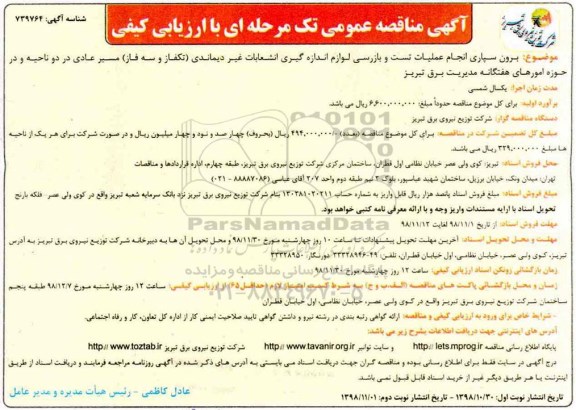 شناسه آگهی: ۷۳۹۷۶۴
آگهی مناقصه عمومی تک مرحله ای با ارزیابی کیفی
موضـوع: برون سپاری انجام عملیات تست و بازرسی لوازم اندازه گیری انشعابات غیر دیماندی (تکفاز و سه فاز) مسیر عادی در دو ناحیه و در
حوزه امورهای هفتگانه مدیریت برق تبریز
مدت زمان اجرا: یکسال شمسی
برآورد اولیه: برای کل موضوع مناقصه حدوداً مبلغ: ۶,۶۰۰,۰۰۰,۰۰۰ ریال می باشد.
دستگاه مناقصه گزار: شرکت توزیع نیروی برق تبریز
مبلغ کل تضمین شرکت در مناقصه: برای کل موضوع مناقصه (بعدد) ۴۹۴,۰۰۰,۰۰۰/- ریال (بحروف) چهار صد و نود و چهار میلیون ریال و در صورت شرکت برای هر یک از ناحیه
ها مبلغ ۳۲۹,۰۰۰,۰۰۰ ریال می باشد.
محل فروش اسناد: تبریز: کوی ولی عصر خیابان نظامی اول قطران، ساختمان مرکزی شرکت توزیع نیروی برق تبریز، طبقه چهارم، اداره قراردادها و مناقصات
تهران: میدان ونک، خیابان برزیل، ساختمان شهید عباسپور، بلوک ۲ نیم طبقه دوم واحد ۲۰۷ آقای عباسی (۸۸۸۸۷۰۸۶ - ۰۲۱)
مبلغ فروش اسناد: مبلغ فروش اسناد پانصد هزار ریال قابل واریز به شماره حساب ۱۳۰۲۸۱۰۲۰۲۱۱ بنام شرکت توزیع نیروی برق تبریز نزد بانک سرمایه شعبه تبریز واقع در کوی ولی عصر فلکه بارنج
تحویل اسناد با ارایه مستندات واریز وجه و با ارائه معرفی نامه کتبی خواهد بود.
مهلت فروش اسناد: از تاریخ ۹۸/۱۱/۱ لغایت ۹۸/۱۱/۱۲
مهلت و محل تحویل اسناد: آخرین مهلت تحویل پیشنهادات تا ساعت ۱۰ روز چهارشنبه مورخ ۹۸/۱۱/۳۰ و محل تحویل آن ها به دبیرخانه شرکت توزیع نیروی برق تبریز به آدرس
تبریز، کوی ولی عصر، خیابان نظامی، اول خیابان قطران، تلفن:
زمان بازگشائی روکن اسناد ارزیابی کیفی: ساعت ۱۲ روز چهارشنبه مورخ ۹۸/۱۱/۳۰
زمان و محل بازگشائی پاکت های مناقصه (الف، ب و ج) به شرط کیفیت امتیاز لازم (حداقل ۶۵) از ارزیابی کیفی: ساعت ۱۲ روز چهارشنبه مورخ ۹۸/۱۲/۷ طبقه پنجم
ساختمان شرکت توزیع نیروی برق تبریز واقع در کوی ولی عصر، خیابان نظامی، اول خیابان قطران
- شرایط خاص برای ورود به ارزیابی کیفی و مناقصه: ارائه گواهی رتبه بندی در رشته نیرو و داشتن گواهی تایید صلاحیت ایمنی کار از اداره کل تعاون، کار و رفاه اجتماعی.
آدرس های اینترنتی جهت دریافت اطلاعات بشرح زیر می باشد:
پایگاه اطلاع رسانی مناقصه http// iets.mprog.ir و سایت توانیر http//www.tavanir.org.ir شرکت توزیع نیروی برق تبریز http// www.toztab.ir
درج آگهی در سایت فقط برای اطلاع رسانی بوده و مناقصه گران جهت دریافت اسناد می بایستی به آدرس های ذکر شده در آگهی روزنامه مراجعه فرمایند و دریافت اسناد از طریق
اینترنت یا هر طریق دیگر غیر از خرید اسناد قابل قبول نمی باشد.
تاریخ انتشار نوبت اول: ۱۳۹۸/۱۰/۳۰ - تاریخ انتشار نوبت دوم: ۱۳۹۸/۱۱/۰۱
عادل کاظمی - رئیس هیأت مدیره و مدیر عامل
ParsNamadData